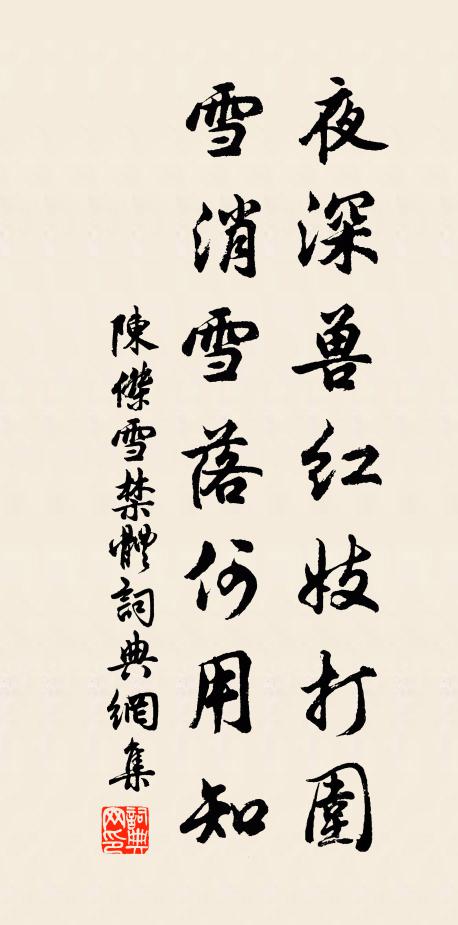 夜深兽红妓打圍
雪消雪落何用知
陳傑雪禁體詞典網集
詞典网印